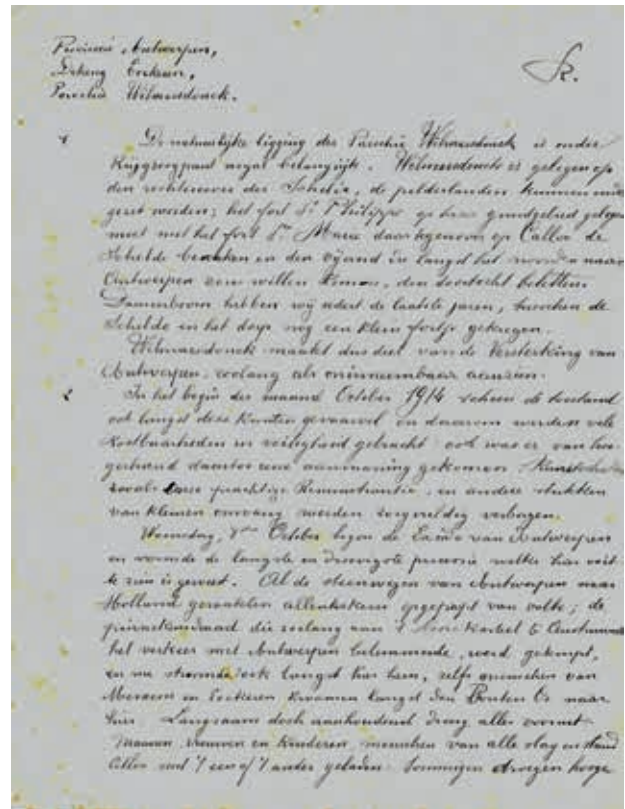 Provincie Antwerpen,
Dekenij Eeckeren,
Parochie Wilmarsdonck.
1 De natuurlijke ligging der Parochie Wilmarsdonck is onder
krijgsoogpunt nogal belangrijk. Wilmarsdonck is gelegen op
den rechteroever der Schelde, de polderlanden kunnen onder
gezet worden; het fort St Philippe op haar grondgebied gelegen
moet met het fort Ste Marie daartegenover op Calloo de
Schelde bewaken en den vijand die langst het naar
Antwerpen zou willen komen, den doortocht beletten.
hebben wij sedert de laatste jaren, tusschen de
Schelde en het dorp nog een klein fortje gekregen.
Wilmarsdonck maakt dus deel van de Versterking van
Antwerpen, zoolang als onineembaar aanzien.
2 In het begin der maand October 1914 scheen de toestand
ook langst deze kanten gevaarvol en daarom werden vele
kostbaarheden in veiligheid gebracht: ook was er van hoo-
gerhand daartoe eene aanmaning gekomen.
zooals onze prachtige Remonstrantie, en andere stukken
van kleinen omvang werden zorgvuldig verborgen.
Woensdag, 7den October begon de Exode van Antwerpen
en vormde de langste en droevigste processie welke hier ooit
te zien is geweest. Al de steenwegen van Antwerpen naar
Holland geraakten allenkskens opgepropt van volk; de
die zoolang aan
het verkeer met Antwerpen belemmerde, werd
en nu stroomde ook langst hier heen, zelfs menschen van
Merxem en Eeckeren kwamen langst den naar
hier. Langzaam doch aanhoudend drong alles vooruit
Mannen, vrouwen en kinderen, menschen van alle slag en stand
Allen met 't een of 't ander geladen. Sommigen droegen hooge